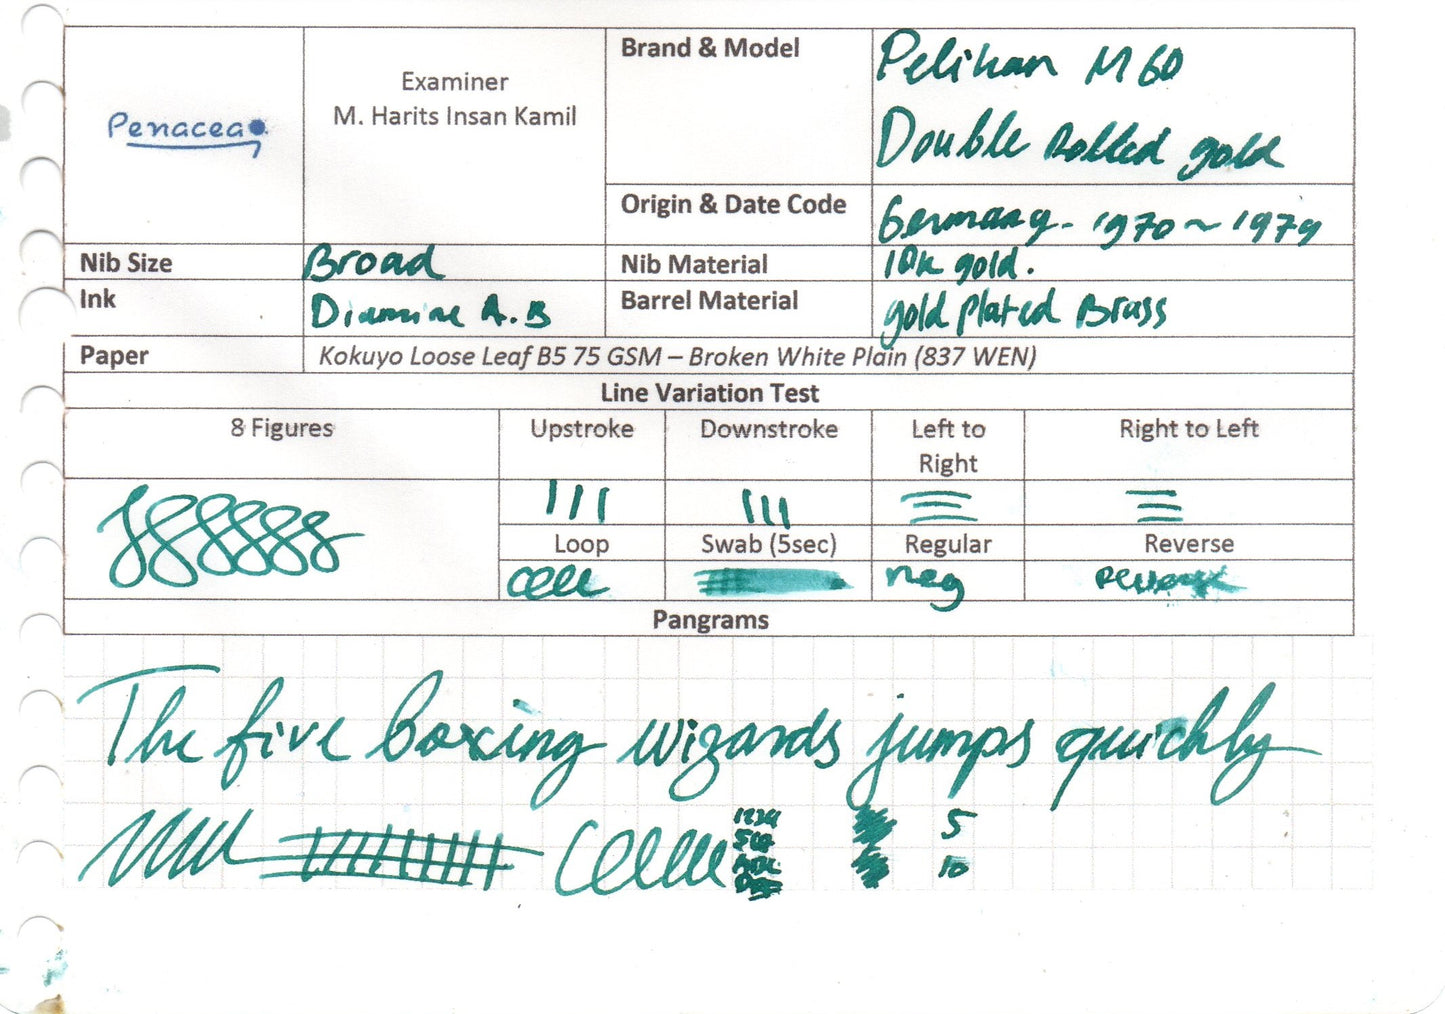 Penacea
Examiner
M. Harits Insan Kamil
Brand & Model
Pelikan M60
Double Rolled gold
Origin & Date Code
Germany - 1970 ~ 1979
Nib Size
Broad
Nib Material
10k gold.
Ink
Diamine A.B
Barrel Material
gold plated Brass
Paper
Kokuyo Loose Leaf B5 75 GSM – Broken White Plain (837 WEN)
Line Variation Test
8 Figures
Upstroke
Downstroke
Left to
Right
Right to Left
Loop
Swab (5sec)
Regular
Reverse
reg
Reverse
Pangrams
The five boxing wizards jumps quickly
1234
5
10